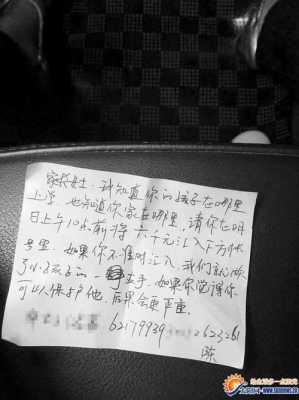 家长女士:我知道你的孩子在哪里
上学,也知道你家在哪里,请你在明
日上午10点前将六千元汇入下方帐
号里,如果你不准时汇入,我们就砍
了小孩子的一左手,如果你觉得你
可以保护他,后果会更严重.
62179939 623261
陈